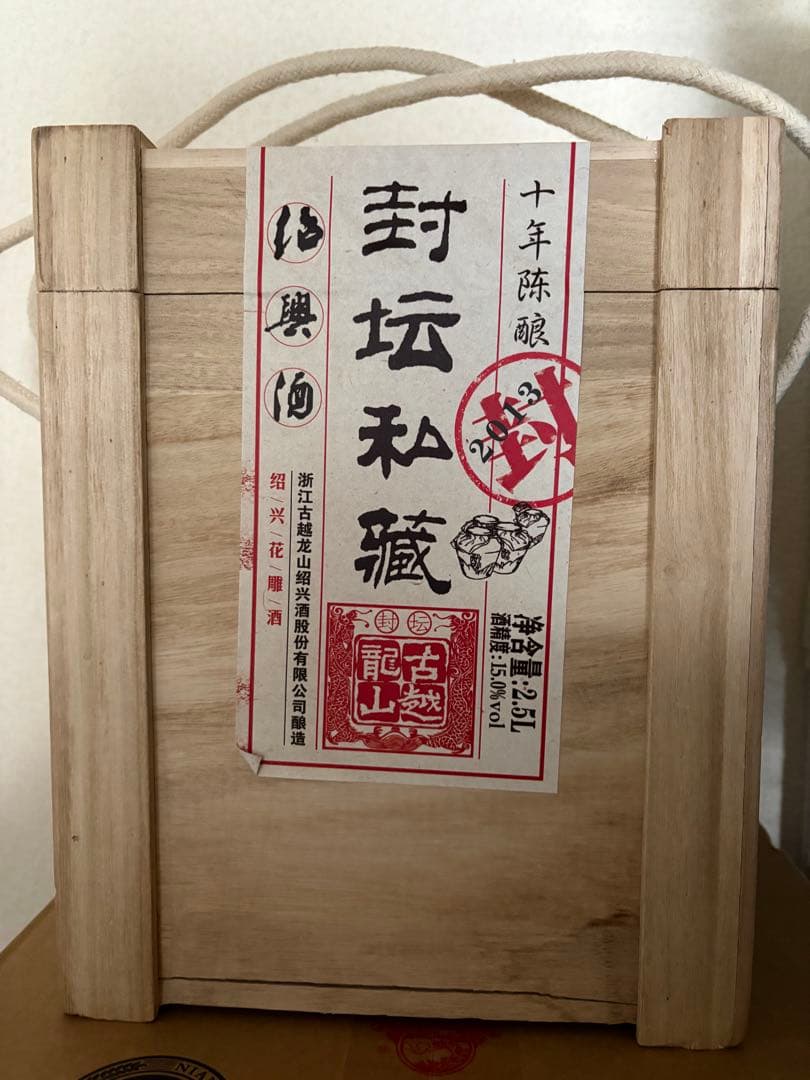 十年陈酿
封
2013
封坛私藏
绍興酒
浙江古越龙山绍兴酒股份有限公司酿造
绍兴花雕酒
封坛
古越龍山
净含量:2.5L
酒精度:15.0%vol
NIAN